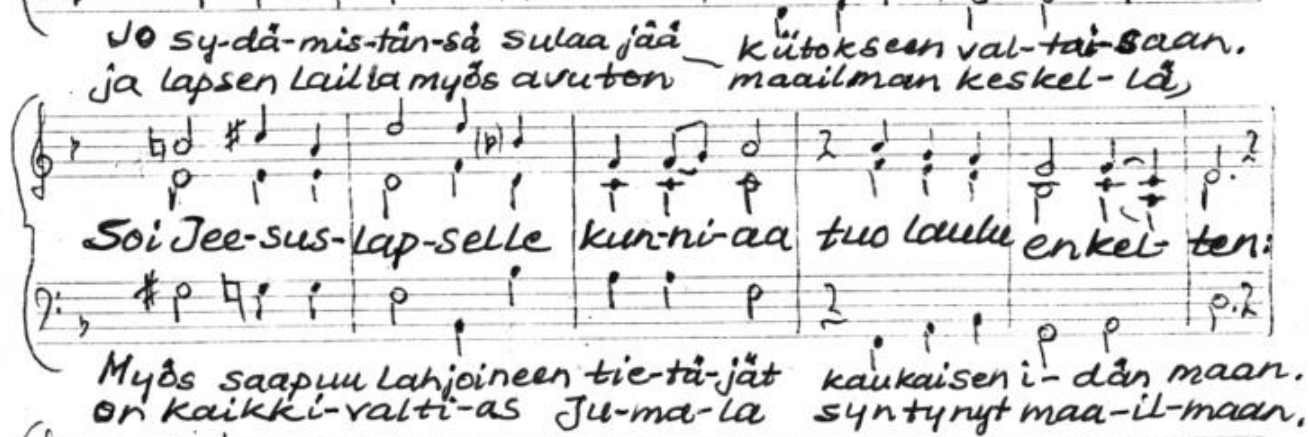 Jo sy-dä-mis-tän-sä sulaa jää kiitokseen val-tai-saan.
ja lapsen lailla myös avuton maailman keskel-lä,
Soi Jee-sus-lap-selle kun-ni-aa tuo laulu enkel-ten:
Myös saapuu lahjoineen tie-tä-jät kaukaisen i-dän maan.
on kaikki-valti-as Ju-ma-la syntynyt maa-il-maan.